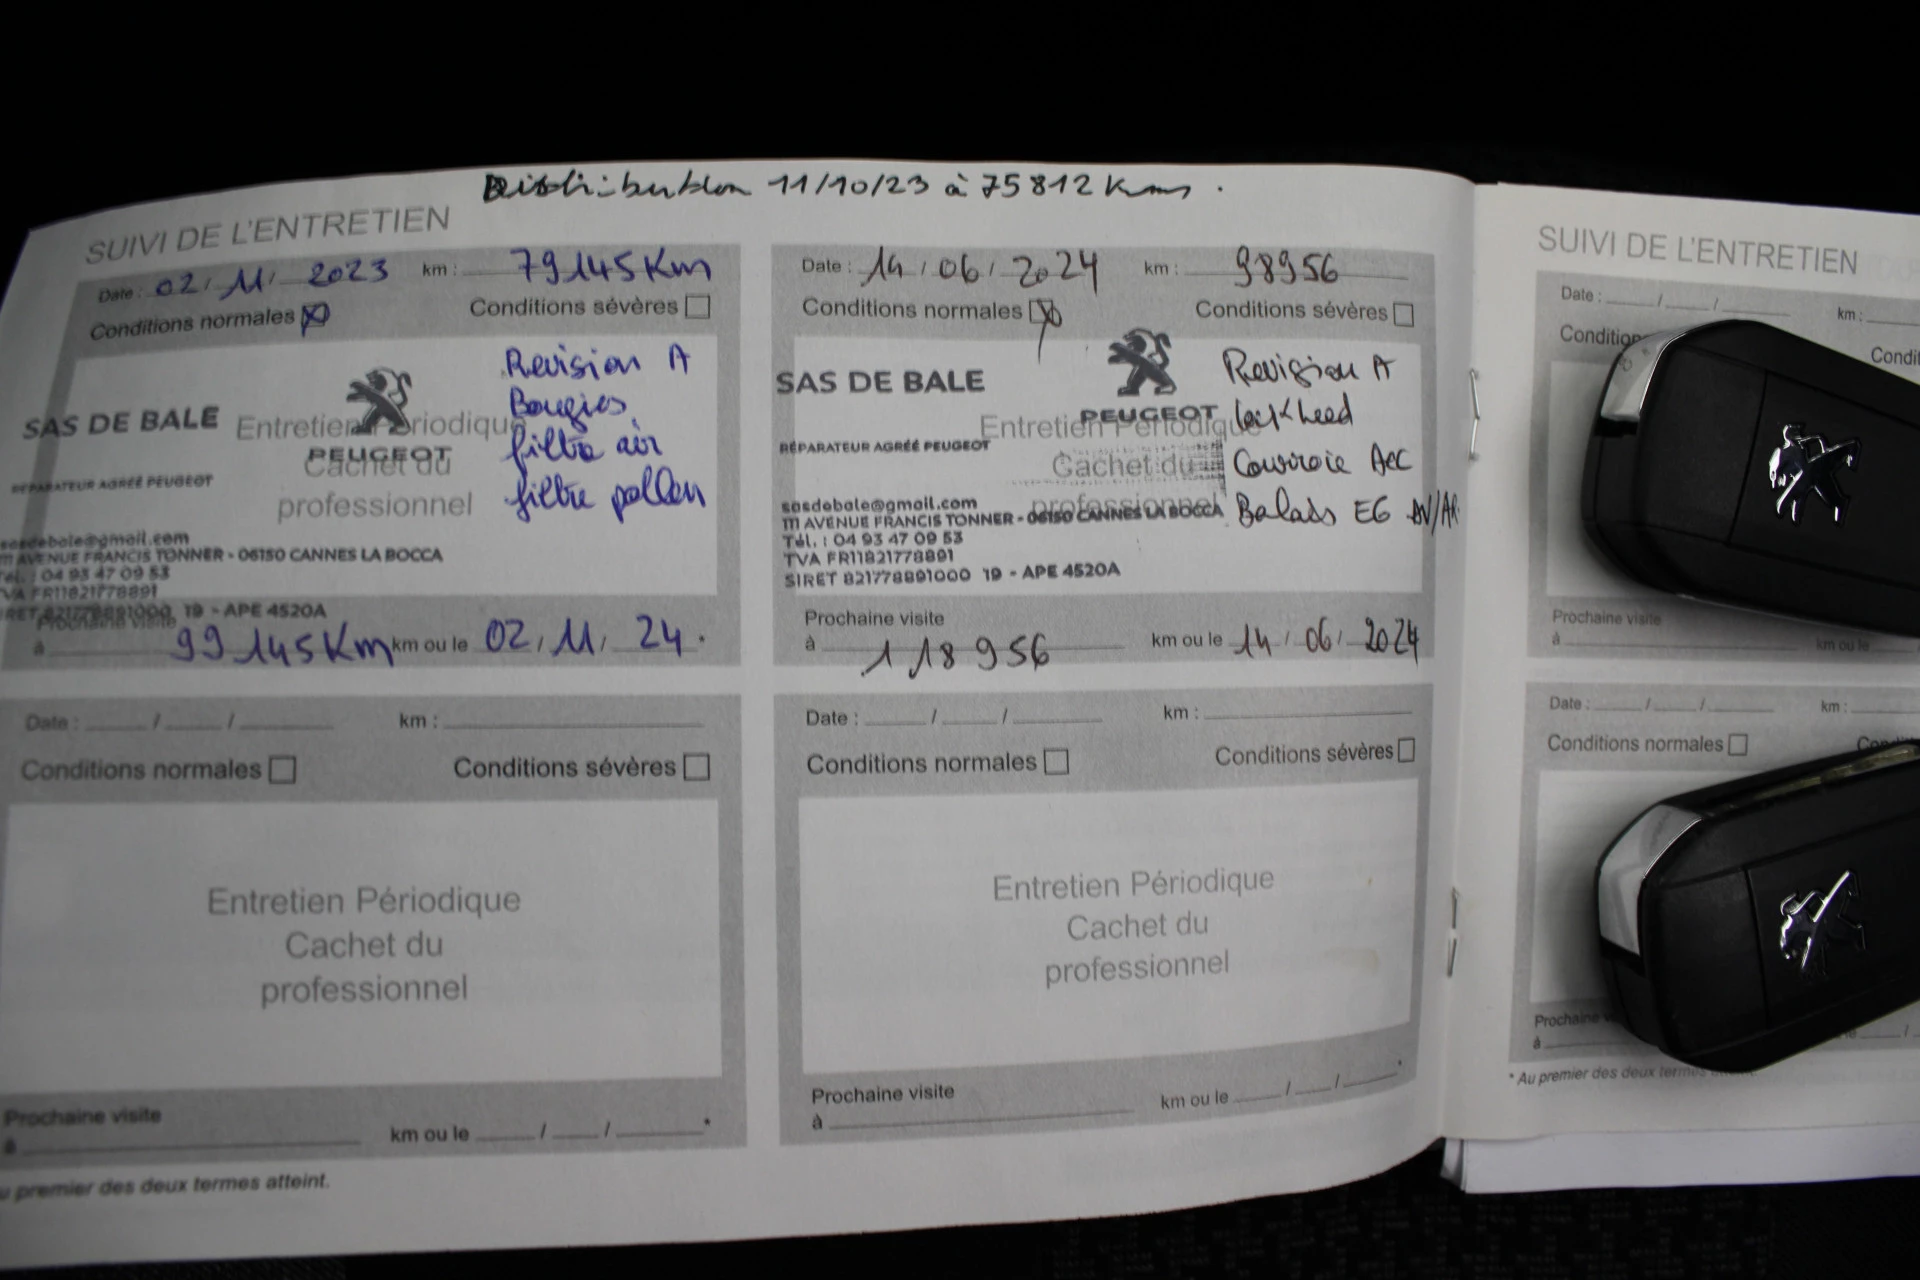 Distribution 11/10/23 à 75812 Kms.
SUIVI DE L'ENTRETIEN
Date : 02/11/2023 km : 79145 Km
Conditions normales Conditions sévères
SAS DE BALE
PEUGEOT
RÉPARATEUR AGRÉÉ PEUGEOT
Entretien Périodique
Cachet du
professionnel
Revision A
Bougies
filtre air
filtre pollen
sasdebale@gmail.com
111 AVENUE FRANCIS TONNER - 06150 CANNES LA BOCCA
Tél. : 04 93 47 09 53
TVA FR11821778891
SIRET 821778891000 19 - APE 4520A
Prochaine visite
à 99145 Km km ou le 02/11/24.
Date : 14/06/2024 km : 98956
Conditions normales Conditions sévères
SAS DE BALE
PEUGEOT
RÉPARATEUR AGRÉÉ PEUGEOT
Entretien Périodique
Cachet du
professionnel
Revision A
lockheed
Courroie Acc
Balais EG AV/AR
sasdebale@gmail.com
111 AVENUE FRANCIS TONNER - 06150 CANNES LA BOCCA
Tél. : 04 93 47 09 53
TVA FR11821778891
SIRET 821778891000 19 - APE 4520A
Prochaine visite
à 118956 km ou le 14/06/2024
Date : / / km :
Conditions normales Conditions sévères
Entretien Périodique
Cachet du
professionnel
Prochaine visite
à km ou le / / *
u premier des deux termes atteint.
Date : / / km :
Conditions normales Conditions sévères
Entretien Périodique
Cachet du
professionnel
Prochaine visite
à km ou le / / *
SUIVI DE L'ENTRETIEN
Date : / / km :
Condition Condi
Prochaine visite
à km ou le
Date : / / km :
Conditions normales
Prochaine
à
* Au premier des deux termes